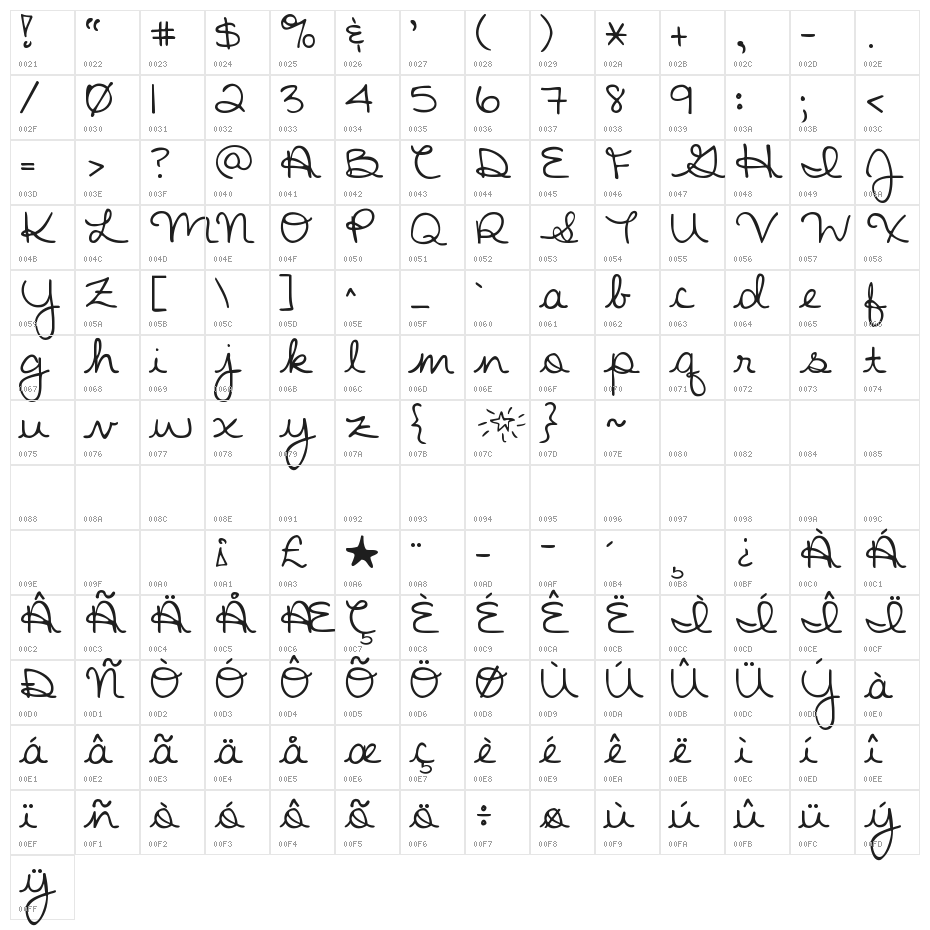 ! “ # $ % & ’ ( ) * + , - .
0021 0022 0023 0024 0025 0026 0027 0028 0029 002A 002B 002C 002D 002E
/ 0 1 2 3 4 5 6 7 8 9 : ; <
002F 0030 0031 0032 0033 0034 0035 0036 0037 0038 0039 003A 003B 003C
= > ? @ A B C D E F G H I J
003D 003E 003F 0040 0041 0042 0043 0044 0045 0046 0047 0048 0049 004A
K L M N O P Q R S T U V W X
004B 004C 004D 004E 004F 0050 0051 0052 0053 0054 0055 0056 0057 0058
Y Z [ \ ] ^ _ ` a b c d e f
0059 005A 005B 005C 005D 005E 005F 0060 0061 0062 0063 0064 0065 0066
g h i j k l m n o p q r s t
0067 0068 0069 006A 006B 006C 006D 006E 006F 0070 0071 0072 0073 0074
u v w x y z { } ~
0075 0076 0077 0078 0079 007A 007B 007C 007D 007E 0080 0082 0084 0085
0088 008A 008C 008E 0091 0092 0093 0094 0095 0096 0097 0098 009A 009C
¡ £ ★ ¨ - ¯ ´ ¸ ¿ À Á
009E 009F 00A0 00A1 00A3 00A6 00A8 00AD 00AF 00B4 00B8 00BF 00C0 00C1
Â Ã Ä Å Æ Ç È É Ê Ë Ì Í Î Ï
00C2 00C3 00C4 00C5 00C6 00C7 00C8 00C9 00CA 00CB 00CC 00CD 00CE 00CF
Ð Ñ Ò Ó Ô Õ Ö Ø Ù Ú Û Ü Ý à
00D0 00D1 00D2 00D3 00D4 00D5 00D6 00D8 00D9 00DA 00DB 00DC 00DD 00E0
á â ã ä å æ ç è é ê ë ì í î
00E1 00E2 00E3 00E4 00E5 00E6 00E7 00E8 00E9 00EA 00EB 00EC 00ED 00EE
ï ñ ò ó ô õ ö ÷ ø ù ú û ü ý
00EF 00F1 00F2 00F3 00F4 00F5 00F6 00F7 00F8 00F9 00FA 00FB 00FC 00FD
ÿ
00FF